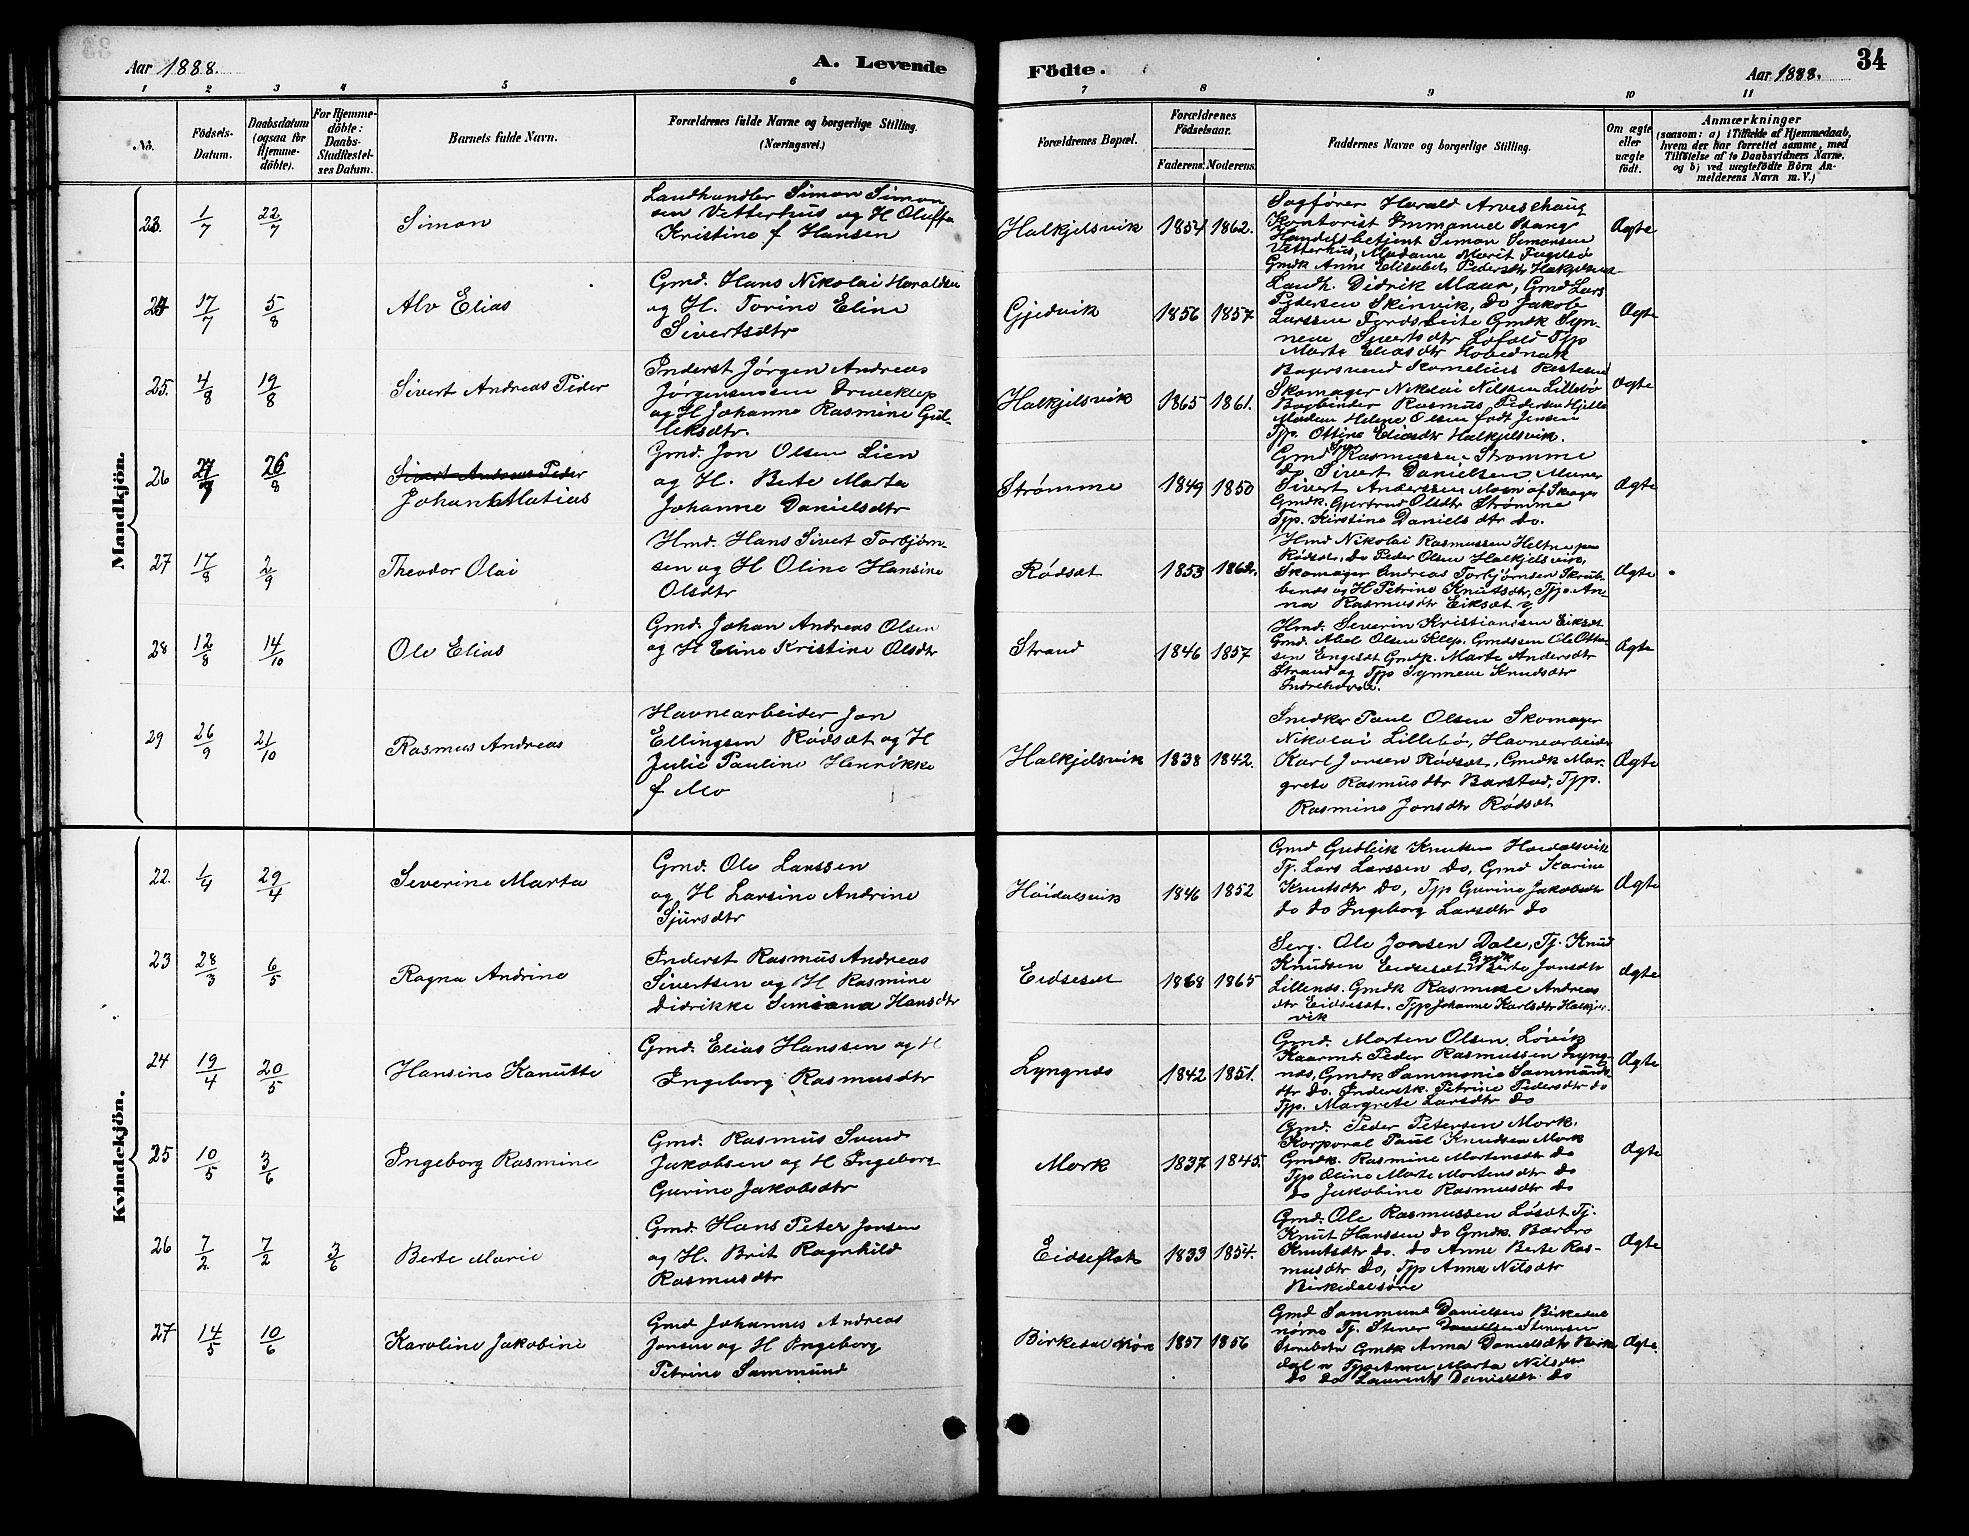 Aar 1888.
A. Levende
Födte.
Aar 1888.
34
1 2 3 4 5 6 7 8 9 10 11
No.
Födsels-
Datum.
Daabsdatum
(ogsaa for
Hjemme-
döbte).
For Hjemme-
döbte:
Daabs-
Stadfæstel-
ses Datum.
Barnets fulde Navn.
Forældrenes fulde Navne og borgerlige Stilling.
(Næringsvei.)
Forældrenes Bopæl.
Forældrenes
Födselsaar.
Faderens.
Moderens.
Faddernes Navne og borgerlige Stilling.
Om ægte
eller
uægte
födt.
Anmærkninger
(saasom: a) i Tilfælde af Hjemmedaab,
hvem der har forrettet samme, med
Tilföielse af to Daabsvidners Navne,
og b) ved uægtefödte Börn An-
melderens Navn m. V.)
Mandkjön.
23. 1/7 22/7
Simon
Landhandler Simon Simon
sen Vetterhus og H Oluffa
Kristine f Hansen
Halkjelsvik 1854 1862.
Sagfører Harald Arveshaug
Kontorist Emmanuel Stang
Handelsbetjent Simon Simonsen
Vetterhus, Madame Marit Fuglsø
Gmdk Anne Elisabet Pedersdtr Halkjelsvik
Ægte
24 17/7 5/8
Alv Elias
Gmd. Hans Nikolai Haraldsen
og H. Torine Eline
Sivertsdtr
Gjedvik 1856 1857
Landh. Didrik Maar, Gmd Lars
Pedersen Skinvik, Do Jakob
Larssen Fyrdsbeite Gmdk Syn-
neve Sjvertsdtr Løfold Tjp
Marte Eliasdtr Hovednak
Ægte
25. 4/8 19/8
Sivert Andreas Peder
Inderst Jørgen Andreas
Jørgensensen Driveklep
og H Johanne Rasmine Gul-
liksdtr.
Halkjelsvik 1865 1861.
Bagersvend Kornelius
Skomager Nikolai Nilssen Lillebø
Bogbinder Rasmus Pedersen Hjelle
Madam Helene Olsen født Jensen
Tjp. Ottine Eliasdtr Halkjelsvik.
Ægte
26 26/8
Sivert Andreas Peder
Johan Matias
Gmd. Jon Olsen Lien
og H. Berte Marta
Johanne Danielsdtr
Strømme 1849 1850
Gmd Rasmussen Strømme
do Sivert Danielsen Maner
Sivert Anderssen Moen af Skager
Gmdk. Gjertrud Olsdtr Strømme
Tjp. Kirstine Danielsdtr do.
Ægte
27 17/8 2/9
Theodor Olai
Hmd. Hans Sivert Torbjørn-
sen og H Oline Hansine
Olsdtr
Rødsæt 1853 1862.
Hmd Nikolai Rasmussen Heltne paa
Rødsæt, Do Peder Olsen Halkjelsvik,
Skomager Andreas Torbjørnsen Skrub-
benes og H Petrine Knutsdtr, Tjp. An-
na Rasmusdtr Eiksæt
Ægte
28 12/8 14/10
Ole Elias
Gmd. Johan Andreas Olsen
og H Eline Kristine Olsdtr
Strand 1846 1857
Hmd. Severin Kristiansen Eiksæt
Gmd. Abel Olsen Klep. Gmdssen Ole Otte-
sen Engesæt Gmdk. Marte Andersdtr
Strand og Tjp Synneve Knudsdtr
Indrehovde.
Ægte
29 26/9 21/10
Rasmus Andreas
Havnearbeider Jon
Ellingsen Rødsæt og H
Julie Pauline Henrikke
f Mo
Halkjelsvik 1838 1842.
Snedker Paul Olsen Skomager
Nikolai Lillebø, Havnearbeider
Karl Jonsen Rødsæt, Gmdk Mar-
grete Rasmusdtr Barstad, Tjp.
Rasmine Jonsdtr Rødsæt
Ægte
Kvindekjön.
22. 1/4 29/4
Severine Marta
Gmd. Ole Larssen
og H Larsine Andrine
Sjursdtr
Høidalsvik 1846 1852
Gmd Gudleik Knutsen Høidalsvik
Tj. Lars Larssen Do, Gmd Karine
Knutsdtr Do, Tjp Gurine Jakobsdtr
do do Ingeborg Larsdtr do
Ægte
23 28/3 6/5
Ragna Andrine
Inderst Rasmus Andreas
Sivertsen og H Rasmine
Didrikke Simiana Hansdtr
Eidseset 1868 1865
Serg. Ole Jonsen Dale, Tj. Knud
Knudsen Eidseset Gmdk Berte Jonsdtr
Lillenes. Gmdk Rasmine Andreas
dtr Eidseset. Tjp Johanne Karlsdtr Halkjels-
vik
Ægte
24 19/4 20/5
Hansine Kanutte
Gmd. Elias Hanssen og H
Ingeborg Rasmusdtr
Lyngnes 1842 1851.
Gmd. Morten Olsen Løvik
Kaarmd. Peder Rasmussen Lyng-
nes, Gmdk Sammonie Sammunds
dtr do. Inderstk. Petrine Pedersdtr do
Tjp. Margrete Larsdtr do
Ægte
25 10/5 3/6
Ingeborg Rasmine
Gmd. Rasmus Svend
Jakobsen og H Ingeborg
Gurine Jakobsdtr
Mork 1837 1845.
Gmd. Peder Petersen Mork.
Korporal Paul Knudsen Mork
Gmdk. Rasmine Mortensdtr do
Tjp Oline Marte Mortensdtr do
do Jakobine Rasmusdtr do
Ægte
26 7/2 7/2 3/6
Berte Marie
Gmd. Hans Peter Jonsen
og H. Brit Ragnhild
Rasmusdtr
Eidseflot 1833 1854.
Gmd. Ole Rasmussen Løsæt Tj.
Knut Hanssen do Gmdk. Barbro
Knutsdtr do. do Anne Berte Ras-
musdtr do, Tjp Anna Nilsdtr
Birkedalsøre
Ægte
27 14/5 10/6
Karoline Jakobine
Gmd Johannes Andreas
Jonsen og H Ingeborg
Petrine Sammund
1857 1856
Gmd Sammund Danielsen Birkedal
nørne Tj. Stener Danielsen Stenersen
Storebotn Gmdk Anna Danielsdtr Birke
dal n Marta Nilsdtr
do do Laurents Danielsdtr do
Ægte.